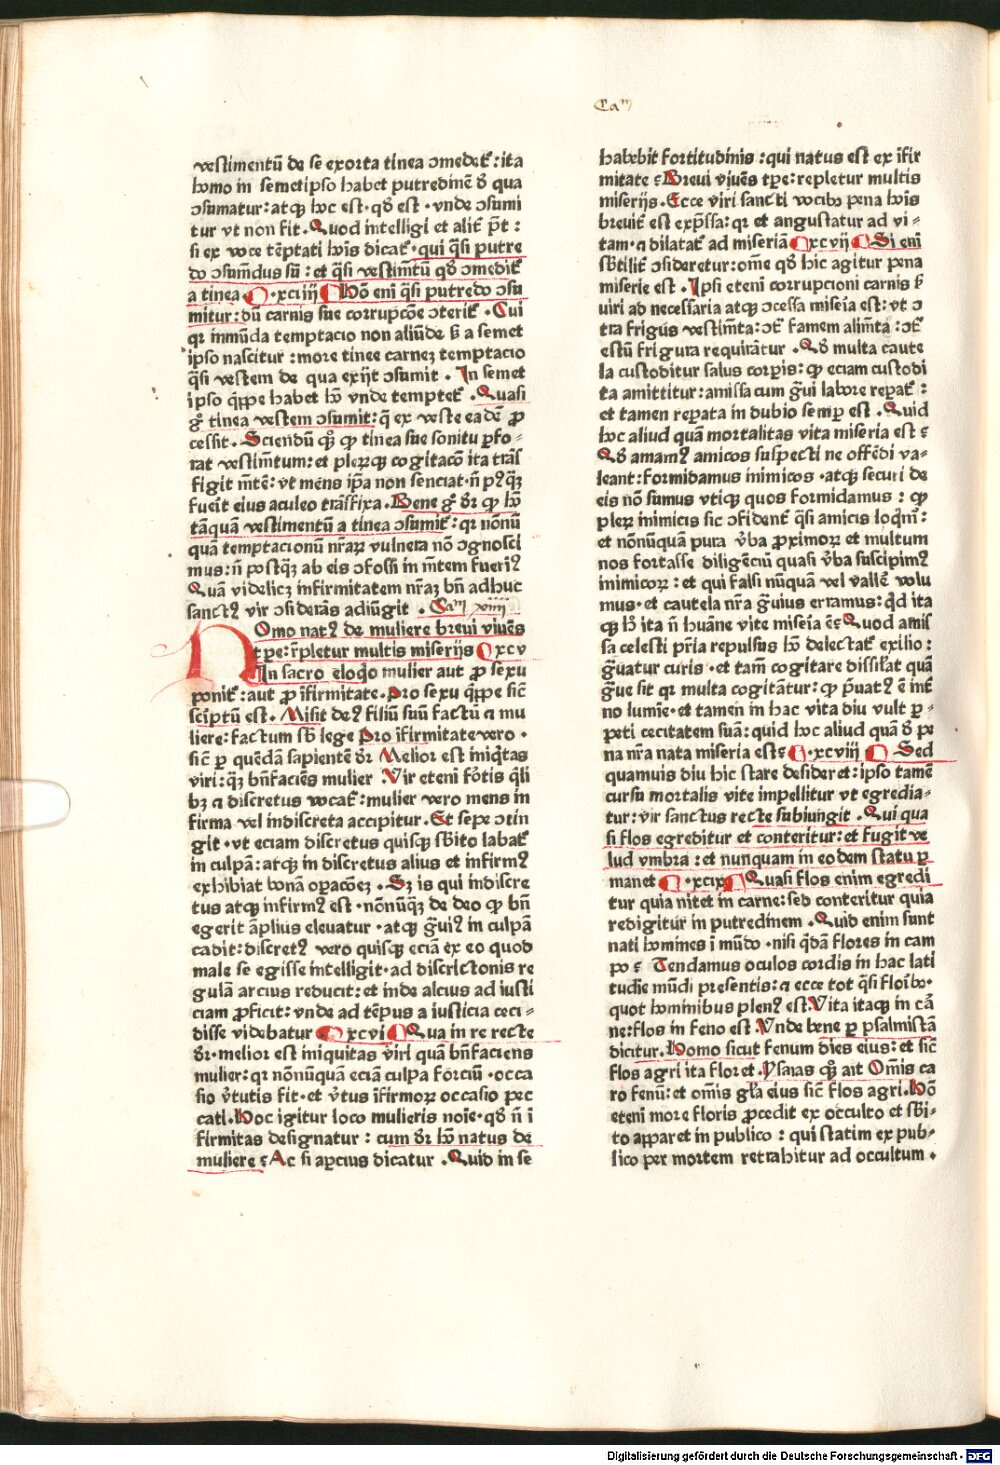 Caᵐ
vestimentū de se exorta tinea ɔmedet᷒ : ita
homo in semetipso habet putredinē ð qua
ɔsumatur : atqꝫ hoc est · qð est · vnde ɔsumi
tur vt non fit . Quod intelligi et alit᷒ p̄t :
si ex voce tēptati hoīs dicat᷒ · qui q̄si putre
do ɔsumēdus sū : et q̄si vestimētū qð ɔmedit᷒
a tinea · xciiij Hō eni q̄si putredo ɔsu
mitur : dū carnis sue corrupcōe ɔterit᷒ . Cui
qꝛ inmūda temptacio non aliūde ꝙ̄ a semet
ipso nascitur : more tinee carneꝫ temptacio
q̄si vestem de qua exijt ɔsumit . In semet
ipso q̄ppe habet hō vnde temptet᷒ . Quasi
gͦ tinea vestem ɔsumit : q̄ ex veste eadē ꝓ
cessit . Sciendū qꝫ ꝙ tinea sine sonitu ꝑfo-
rat vestim̄tum : et pleꝝqꝫ cogitacō ita trās
figit mētē : vt mens ip̄a non senciat · n̄ pꝰqꝫ
fuerit eius aculeo trāsfixa . Bene gͦ dꝛ ꝙ hō
tāquā vestimentū a tinea ɔsumit᷒ : qꝛ nōnū
quā temptacionū nr̄aꝝ vulnera nō ɔgnosci
mus : n̄ postqꝫ ab eis ɔfossi in mētem fuerīꝰ
Quā videlicꝫ infirmitatem nr̄aꝫ bn̄ adhuc
sanctꝰ vir ɔsiderās adiūgit . Caᵐ xiiij
HOmo natꝰ de muliere breui viuēs
tpe : r̄pletur multis miserijs xcv
In sacro eloq̄o mulier aut ꝓ sexu
ponit᷒ : aut ꝓ īfirmitate . Pro sexu q̄ppe sic̄
scriptū est . Misit deꝰ filiū suū factū a mu
liere : factum sb̄ lege Pro īfirmitate vero ·
sic̄ ꝑ quēdā sapientē dꝛ Melior est iniq̄tas
viri : qꝫ bn̄faciēs mulier . Vir eteni fōtis q̄li
bꝫ a discretus vocat᷒ : mulier vero mens in
firma vel indiscreta accipitur . Et sepe ɔtin
git · vt eciam discretus quisqꝫ sb̄ito labat᷒
in culpā : atqꝫ in discretus alius et infirmꝰ
exhibiat bonā oꝑacōeꝫ . Sꝫ is qui indiscre
tus atqꝫ infirmꝰ est · nōnūqꝫ de deo ꝙ bn̄
egerit āplius eleuatur · atqꝫ ḡuiꝰ in culpā
cadit : discretꝰ vero quisqꝫ eciā ex eo quod
male se egisse intelligit · ad discrictonis re
gulā arcius reducit : et inde alcius ad iusti
ciam ꝓficit : vnde ad tēpus a iusticia ceci-
disse videbatur xcvi Qua in re recte
dꝛ · melior est iniquitas viri quā bn̄faciens
mulier : qꝛ nōnūquā eciā culpa forciū · occa
sio v̄tutis fit · et v̄tus īfirmoꝝ occasio pec
cati . Hoc igitur loco mulieris noīe · qð n̄ i
firmitas designatur : cum dꝛ hō natus de
muliere : Ac si aꝑcius dicatur . Quid in se
habebit fortitudinis : qui natus est ex īfir
mitate : Breui viuēs tpe : repletur multis
miserijs . Ecce viri sancti vocibꝰ pena hoīs
breuit᷒ est exp̄ssa : qꝛ et angustatur ad vi-
tam · a dilatat᷒ ad miseriā xcvij Si eni
sb̄tilit᷒ ɔsideretur : om̄e qð hic agitur pena
miserie est . Ipsi eteni corrupcioni carnis ẜ
uiri ad necessaria atqꝫ ɔcessa miseīa est : vt ɔ
tra frigus vestim̄ta : ɔt᷒ famem alim̄ta : ɔt᷒
estū frigura requirātur . Qð multa caute
la custoditur salus corꝑis : ꝙ eciam custodi
ta amittitur : amissa cum ḡui labore reꝑat᷒ :
et tamen reꝑata in dubio semꝑ est . Quid
hoc aliud quā mortalitas vita miseria est :
Qð amamꝰ amicos suspecti ne offēdi va-
leant : formidamus inimicos · atqꝫ securi de
eis nō sumus vtiqꝫ quos formidamus : ꝙ
pleꝝ inimicis sic ɔfident᷒ q̄si amicis loq̄mr᷒ :
et nōnūquā pura v̄ba ꝓximoꝝ et multum
nos fortasse diligēciū quasi v̄ba suscipimꝰ
inimicoꝝ : et qui falsi nūquā vel vallē volu
mus · et cautela nr̄a ḡuius erramus : qd̄ ita
qꝫ hͦ ita n̄ huāne vite miseīa ē : Quod amis
sa celesti pr̄ia repulsus hō delectat᷒ exilio :
ḡuatur curis · et tam̄ cogitare dissilat quā
ḡue sit qꝛ multa cogitātur : ꝙ p̄uatꝰ ē int᷒
no lumīe · et tamen in hac vita diu vult ꝑ-
peti cecitatem suā : quid hoc aliud quā ð pe
na nr̄a nata miseria est : · xcviij Sed
quamuis diu hic stare desideret : ipso tamē
cursu mortalis vite impellitur vt egredia-
tur : vir sanctus recte subiungit . Qui qua
si flos egreditur et conteritur : et fugit ve
lud vmbra : et nunquam in eodem statu ꝑ
manet · xcix Quasi flos enim egredi
tur quia nitet in carne : sed conteritur quia
redigitur in putredinem . Quid enim sunt
nati homines ī mūdo · nisi q̄dā flores in cam
po : Tendamus oculos cordis in hac lati
tudīe mūdi presentis : a ecce tot q̄si floībꝰ ·
quot hominibus plenꝰ est . Vita itaqꝫ in cā
ne : flos in feno est . Vnde bene ꝑ psalmistā
dicitur . Homo sicut fenum dies eius : et sic̄
flos agri ita floret . Ysaias qꝫ ait Om̄is ca
ro fenū : et om̄is gl̄a eius sic̄ flos agri . Hō
eteni more floris ꝓcedit ex occulto et sb̄i-
to apparet in publico : qui statim ex pub-
lico per mortem retrahitur ad occultum .
Digitalisierung gefördert durch die Deutsche Forschungsgemeinschaft - DFG